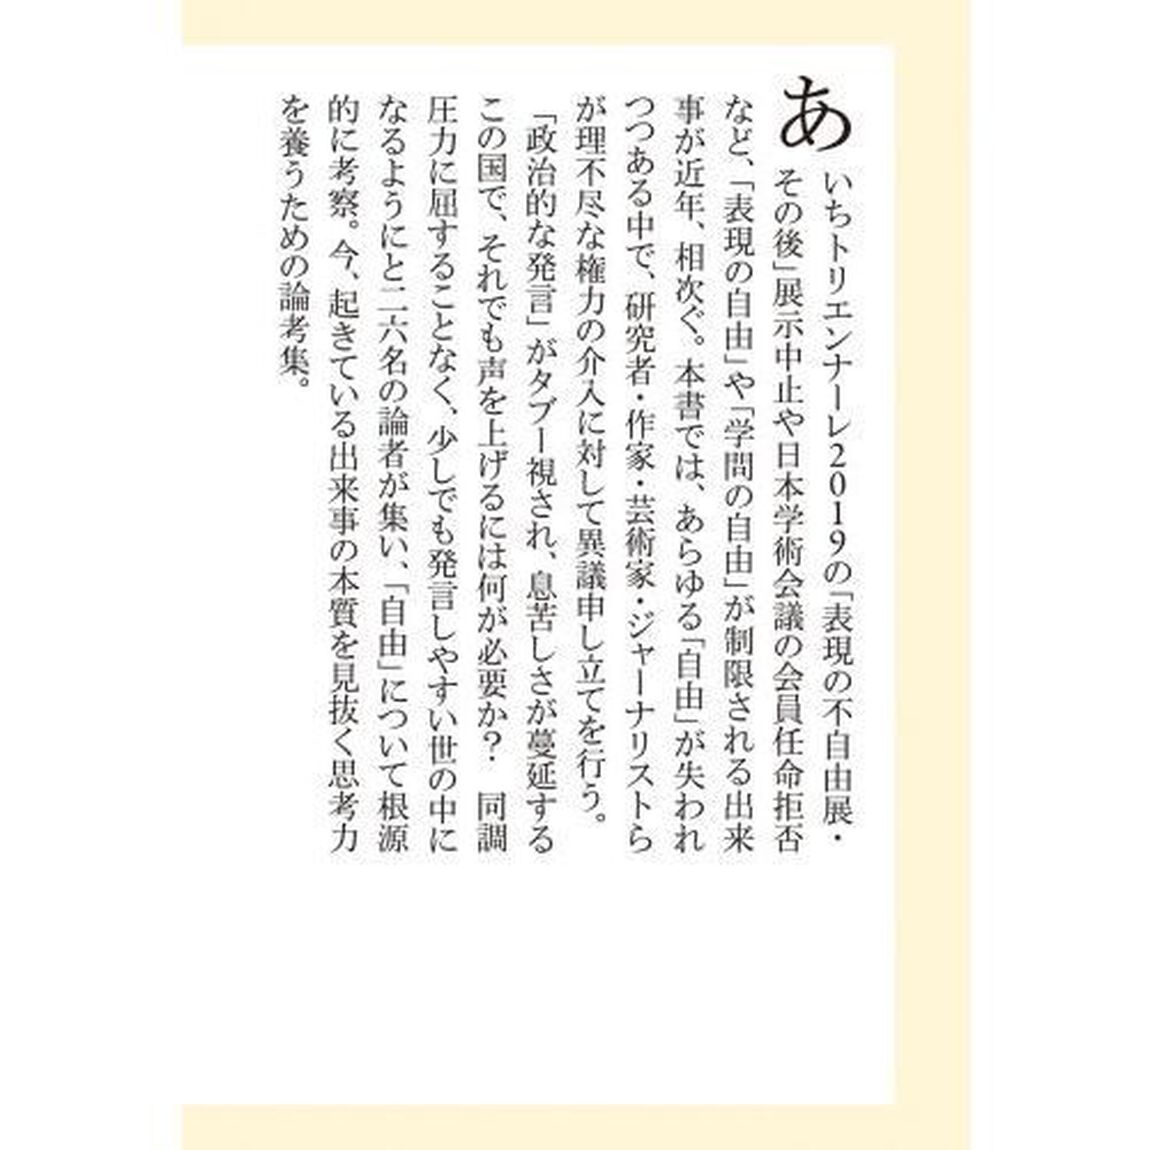 あいちトリエンナーレ2019の「表現の不自由展・
その後」展示中止や日本学術会議の会員任命拒否
など、「表現の自由」や「学問の自由」が制限される出来
事が近年、相次ぐ。本書では、あらゆる「自由」が失われ
つつある中で、研究者・作家・芸術家・ジャーナリストら
が理不尽な権力の介入に対して異議申し立てを行う。
「政治的な発言」がタブー視され、息苦しさが蔓延する
この国で、それでも声を上げるには何が必要か？　同調
圧力に屈することなく、少しでも発言しやすい世の中に
なるようにと二六名の論者が集い、「自由」について根源
的に考察。今、起きている出来事の本質を見抜く思考力
を養うための論考集。